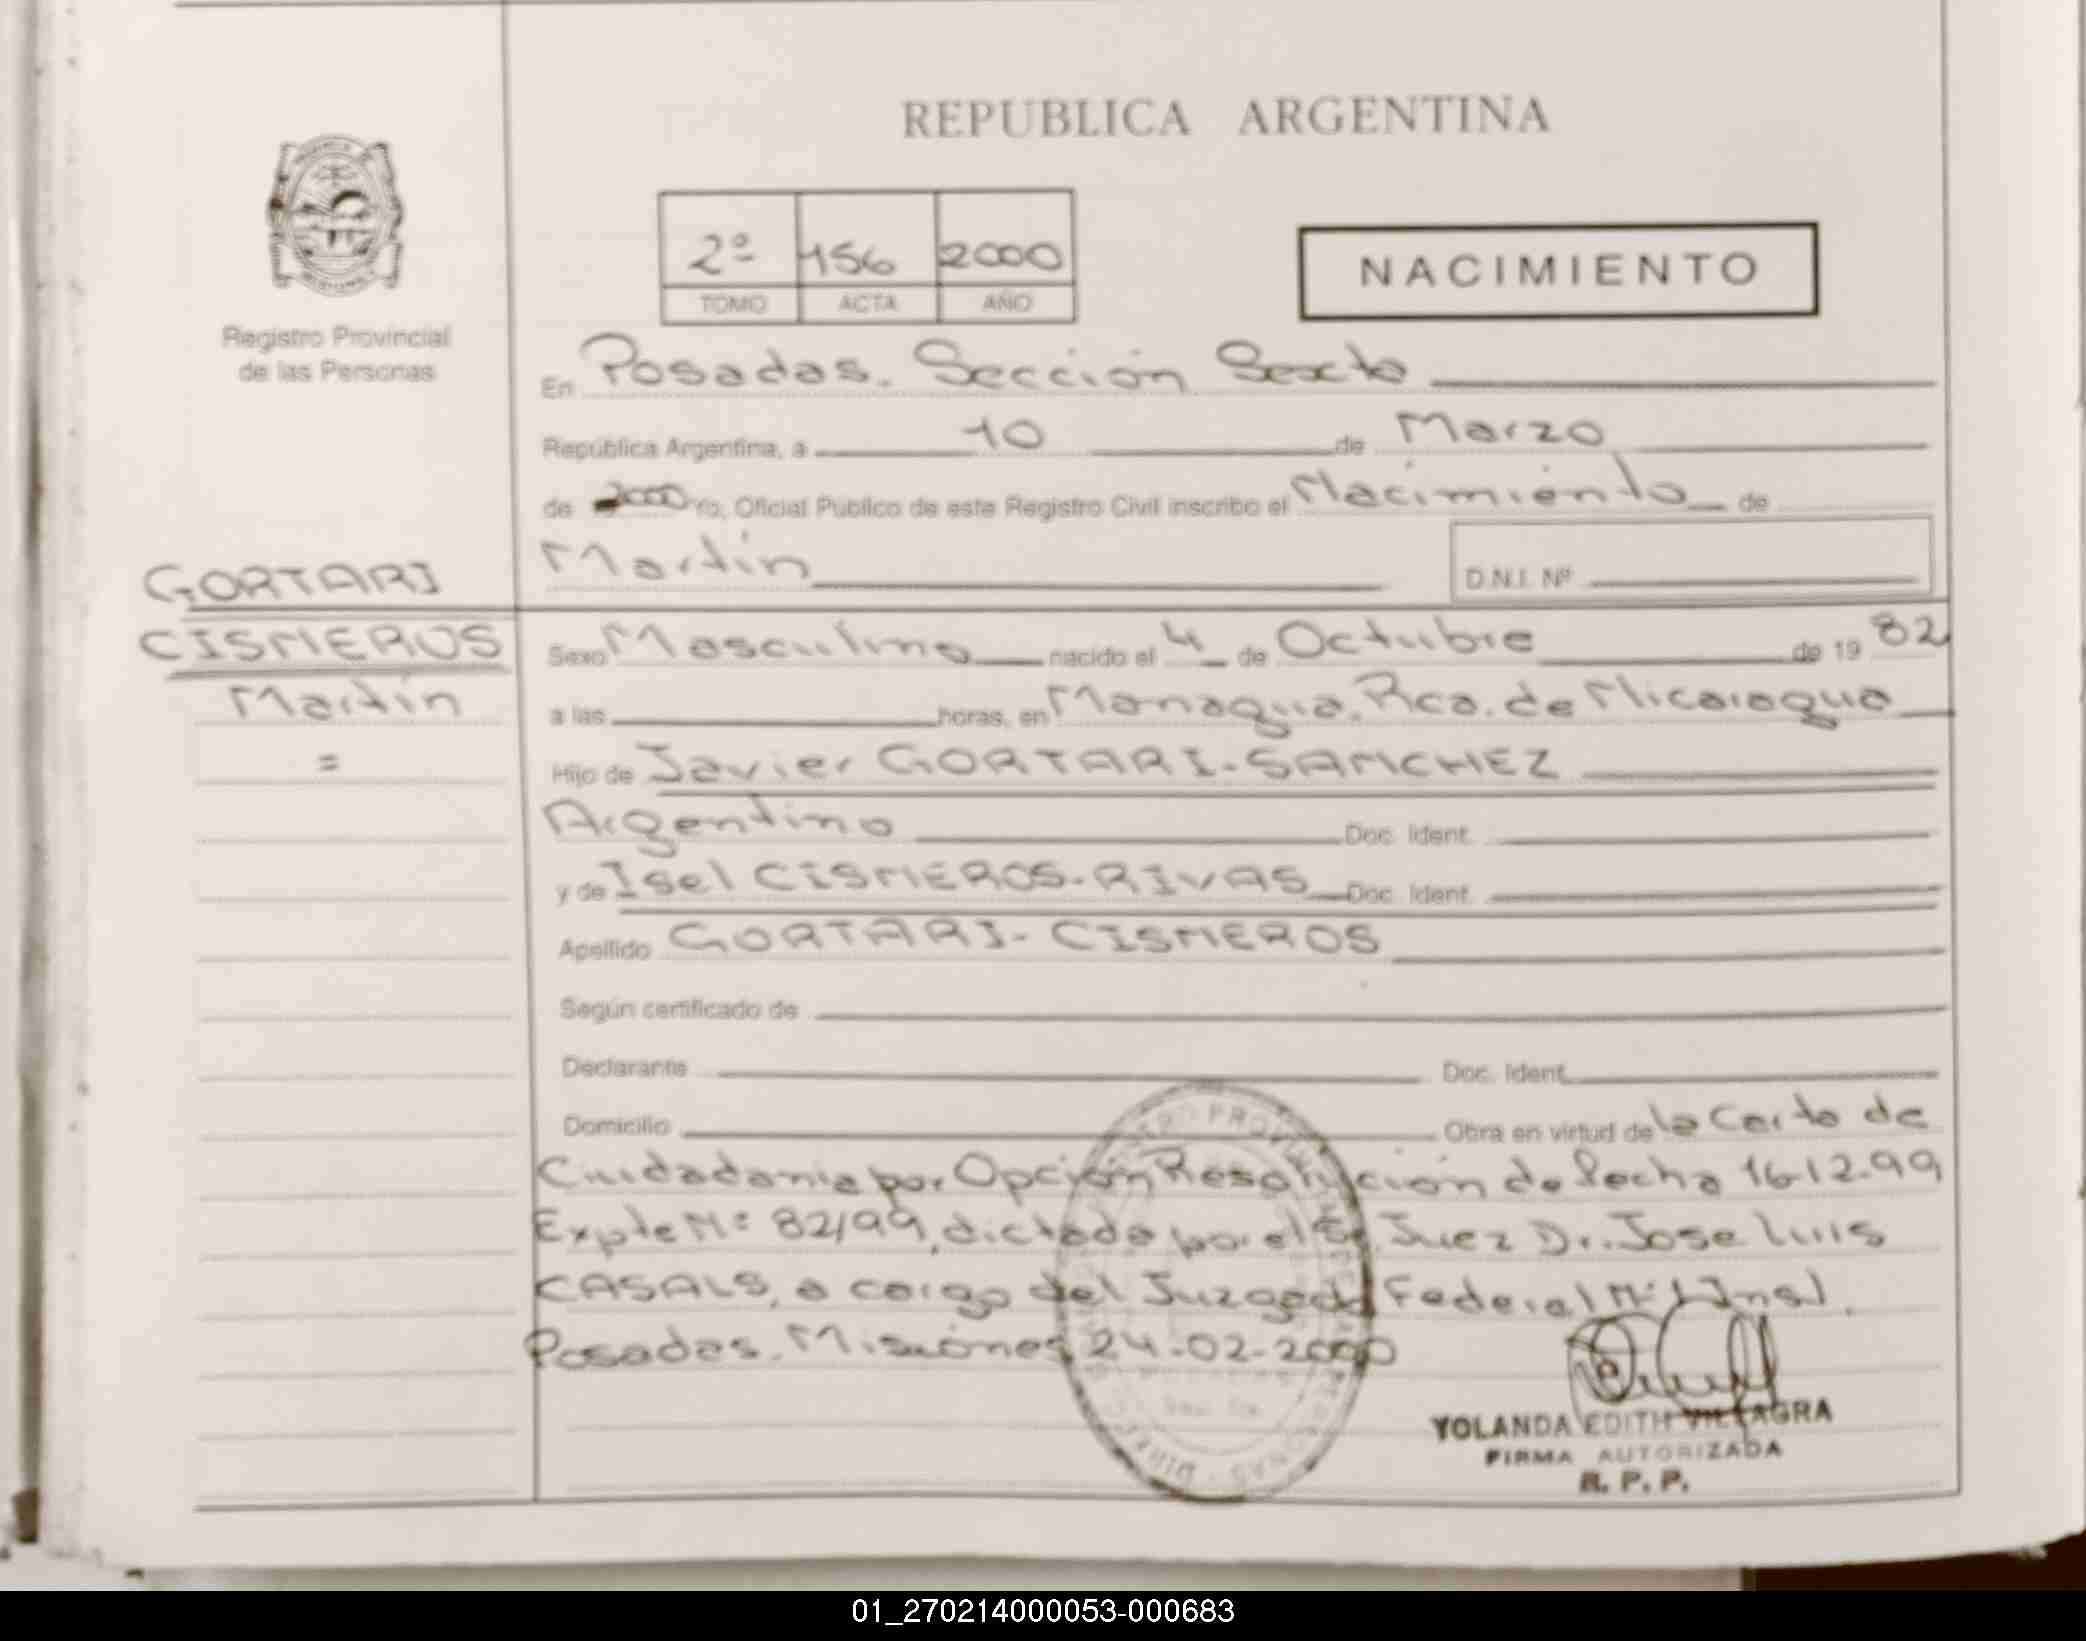 REPUBLICA ARGENTINA
2º 156 2000
TOMO ACTA AÑO
NACIMIENTO
Registro Provincial
de las Personas
En Posadas. Sección Sexta
República Argentina, a 10 de Marzo
de 2000 Yo, Oficial Público de este Registro Civil inscribo el Nacimiento de
Martín
D.N.I. Nº
GORTARI
CISNEROS
Martín
=
Sexo Masculino nacido el 4 de Octubre de 19 82
a las horas, en Managua, Rca. de Nicaragua
Hijo de Javier GORTARI-SANCHEZ
Argentino Doc. Ident.
y de Isel CISNEROS-RIVAS Doc. Ident.
Apellido GORTARI-CISNEROS
Según certificado de
Declarante Doc. Ident.
Domicilio Obra en virtud de la Carta de
Ciudadania por Opción Resolución de fecha 16-12-99
Expte Nº 82/99, dictada por el Sr. Juez Dr. Jose Luis
CASALS, a cargo del Juzgado Federal Nº 1
Posadas, Misiones 24-02-2000
YOLANDA EDITH VILLAGRA
FIRMA AUTORIZADA
R. P. P.
01_270214000053-000683